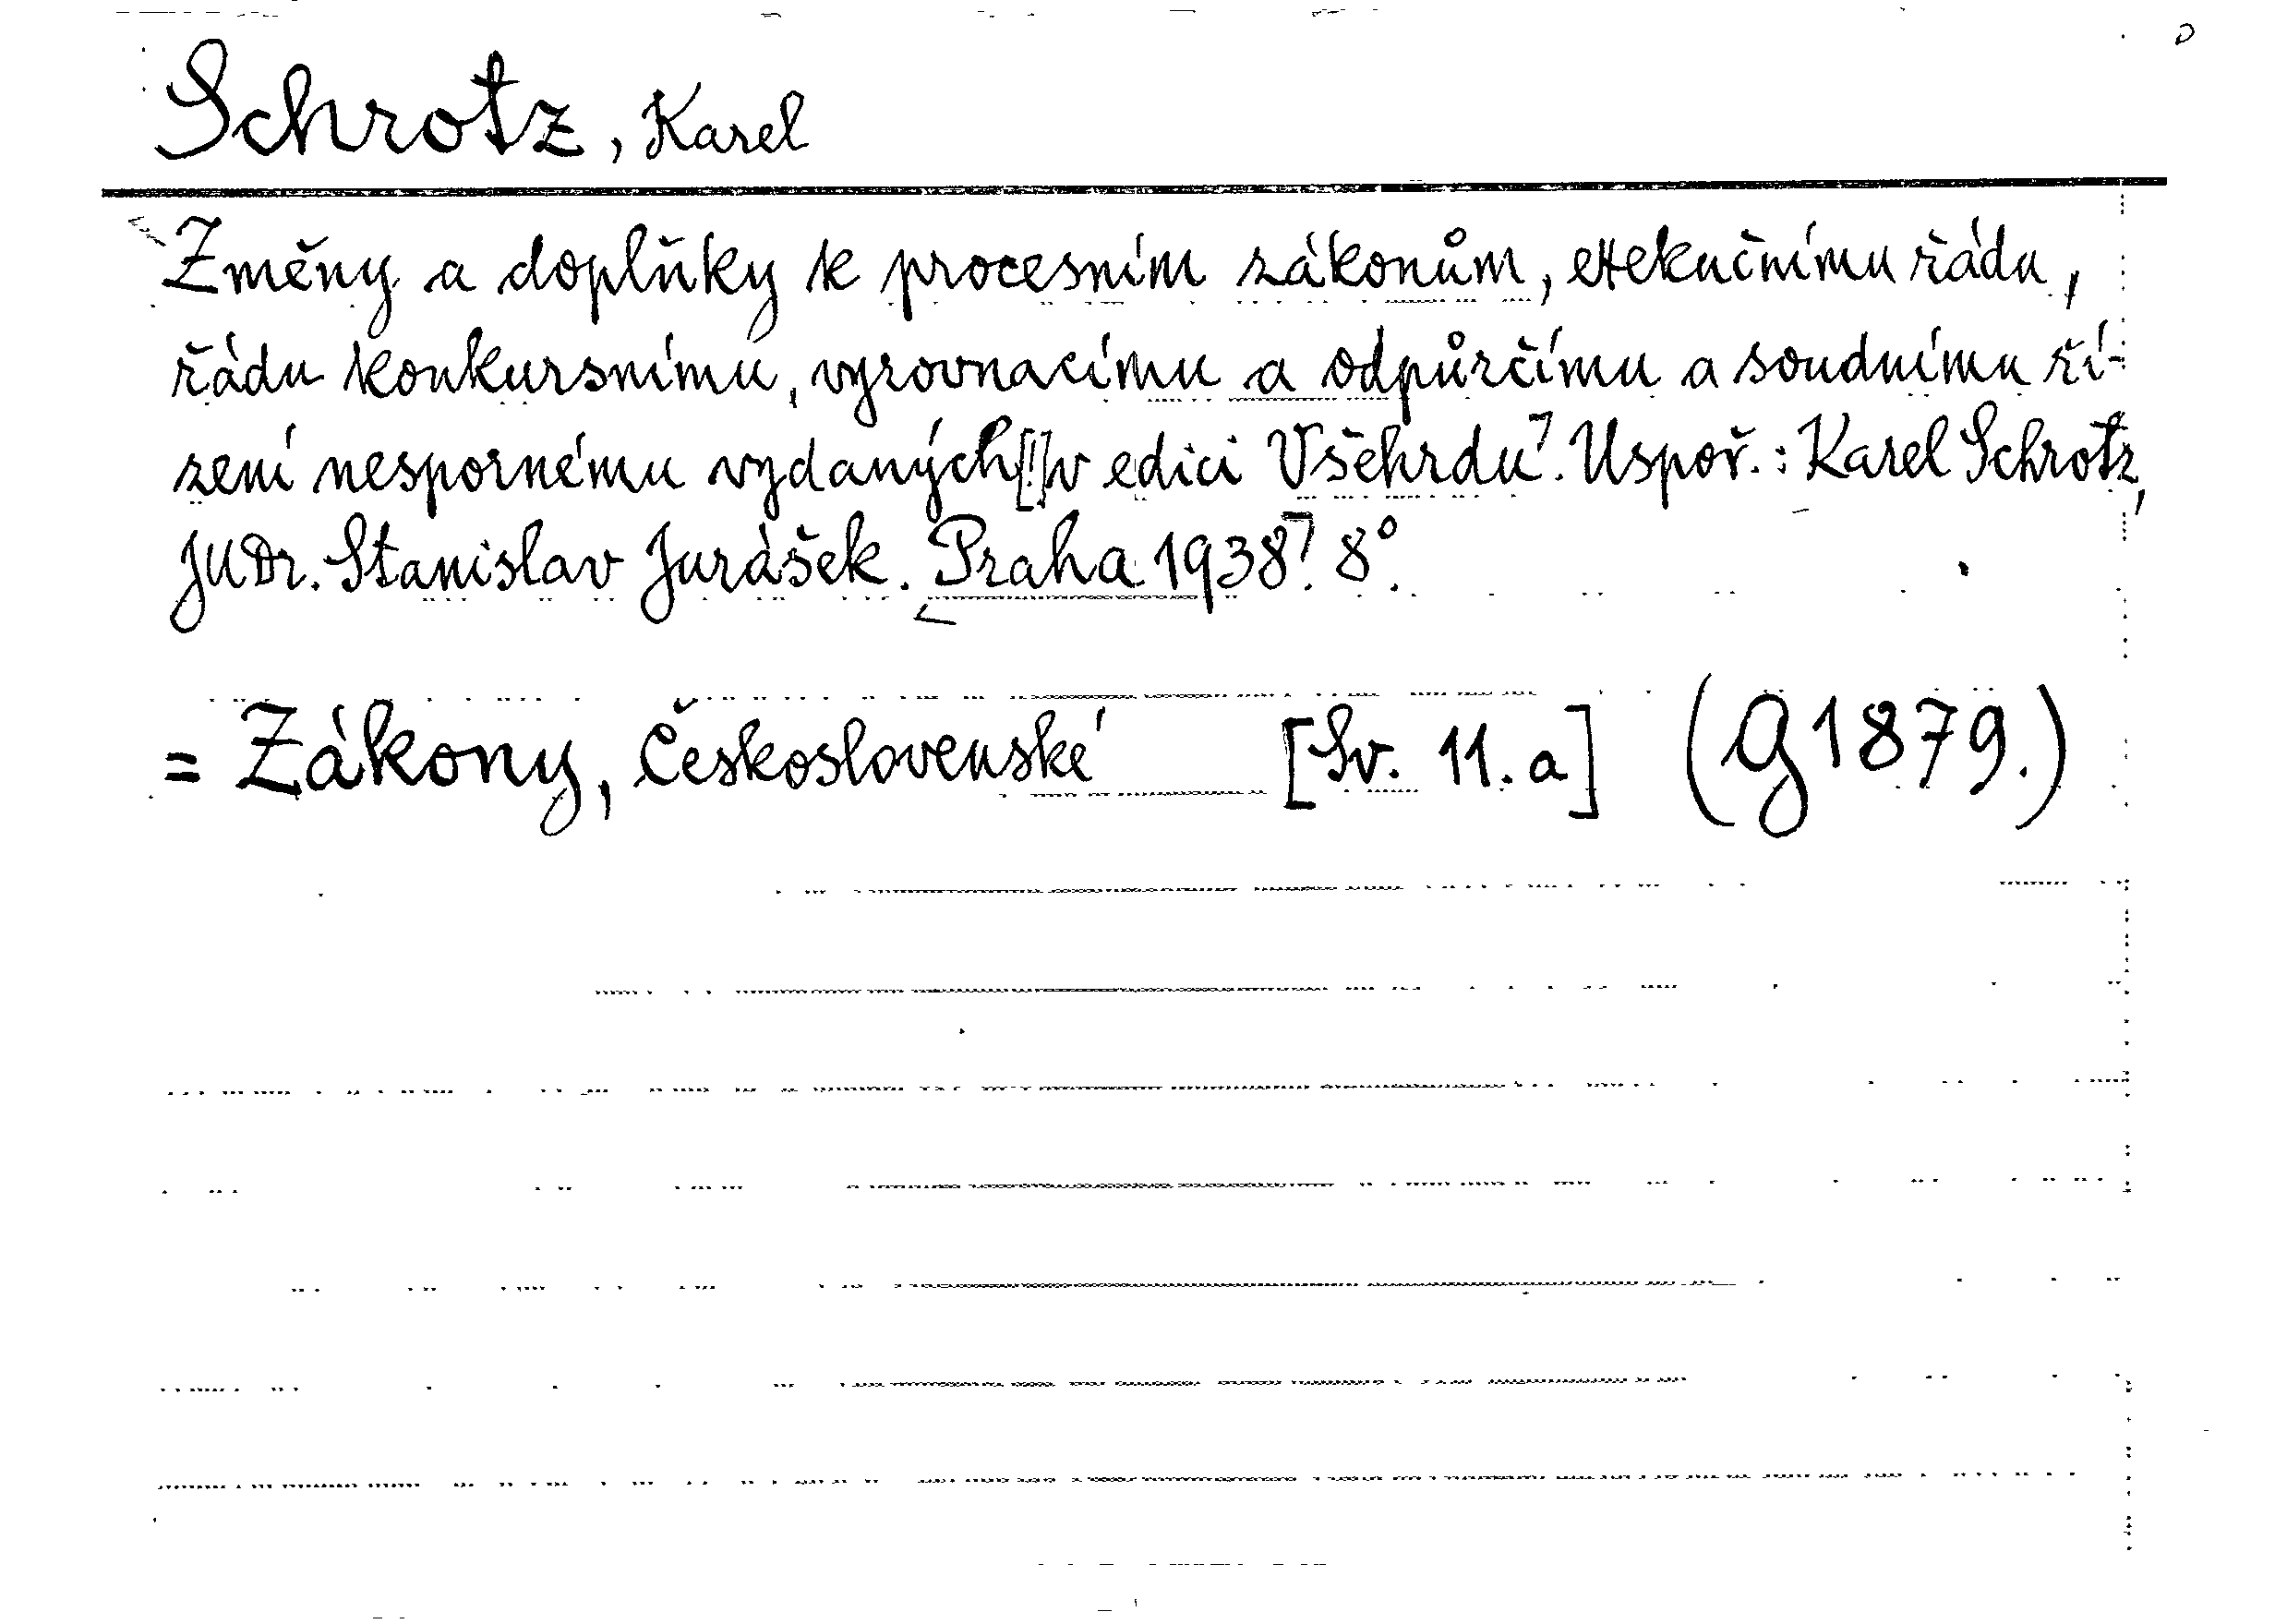 Schrotz, Karel
Změny a doplňky k procesním zákonům, exekučnímu řádu,
řádu konkursnímu, vyrovnacímu a odpůrčímu a soudnímu ří-
zení nespornému vydaných [!] v edici Všehrdu. Uspoř.: Karel Schrotz,
JUDr. Stanislav Jurášek. Praha 1938. 8°.
= Zákony, Československé [Sv. 11. a] (G 1879.)